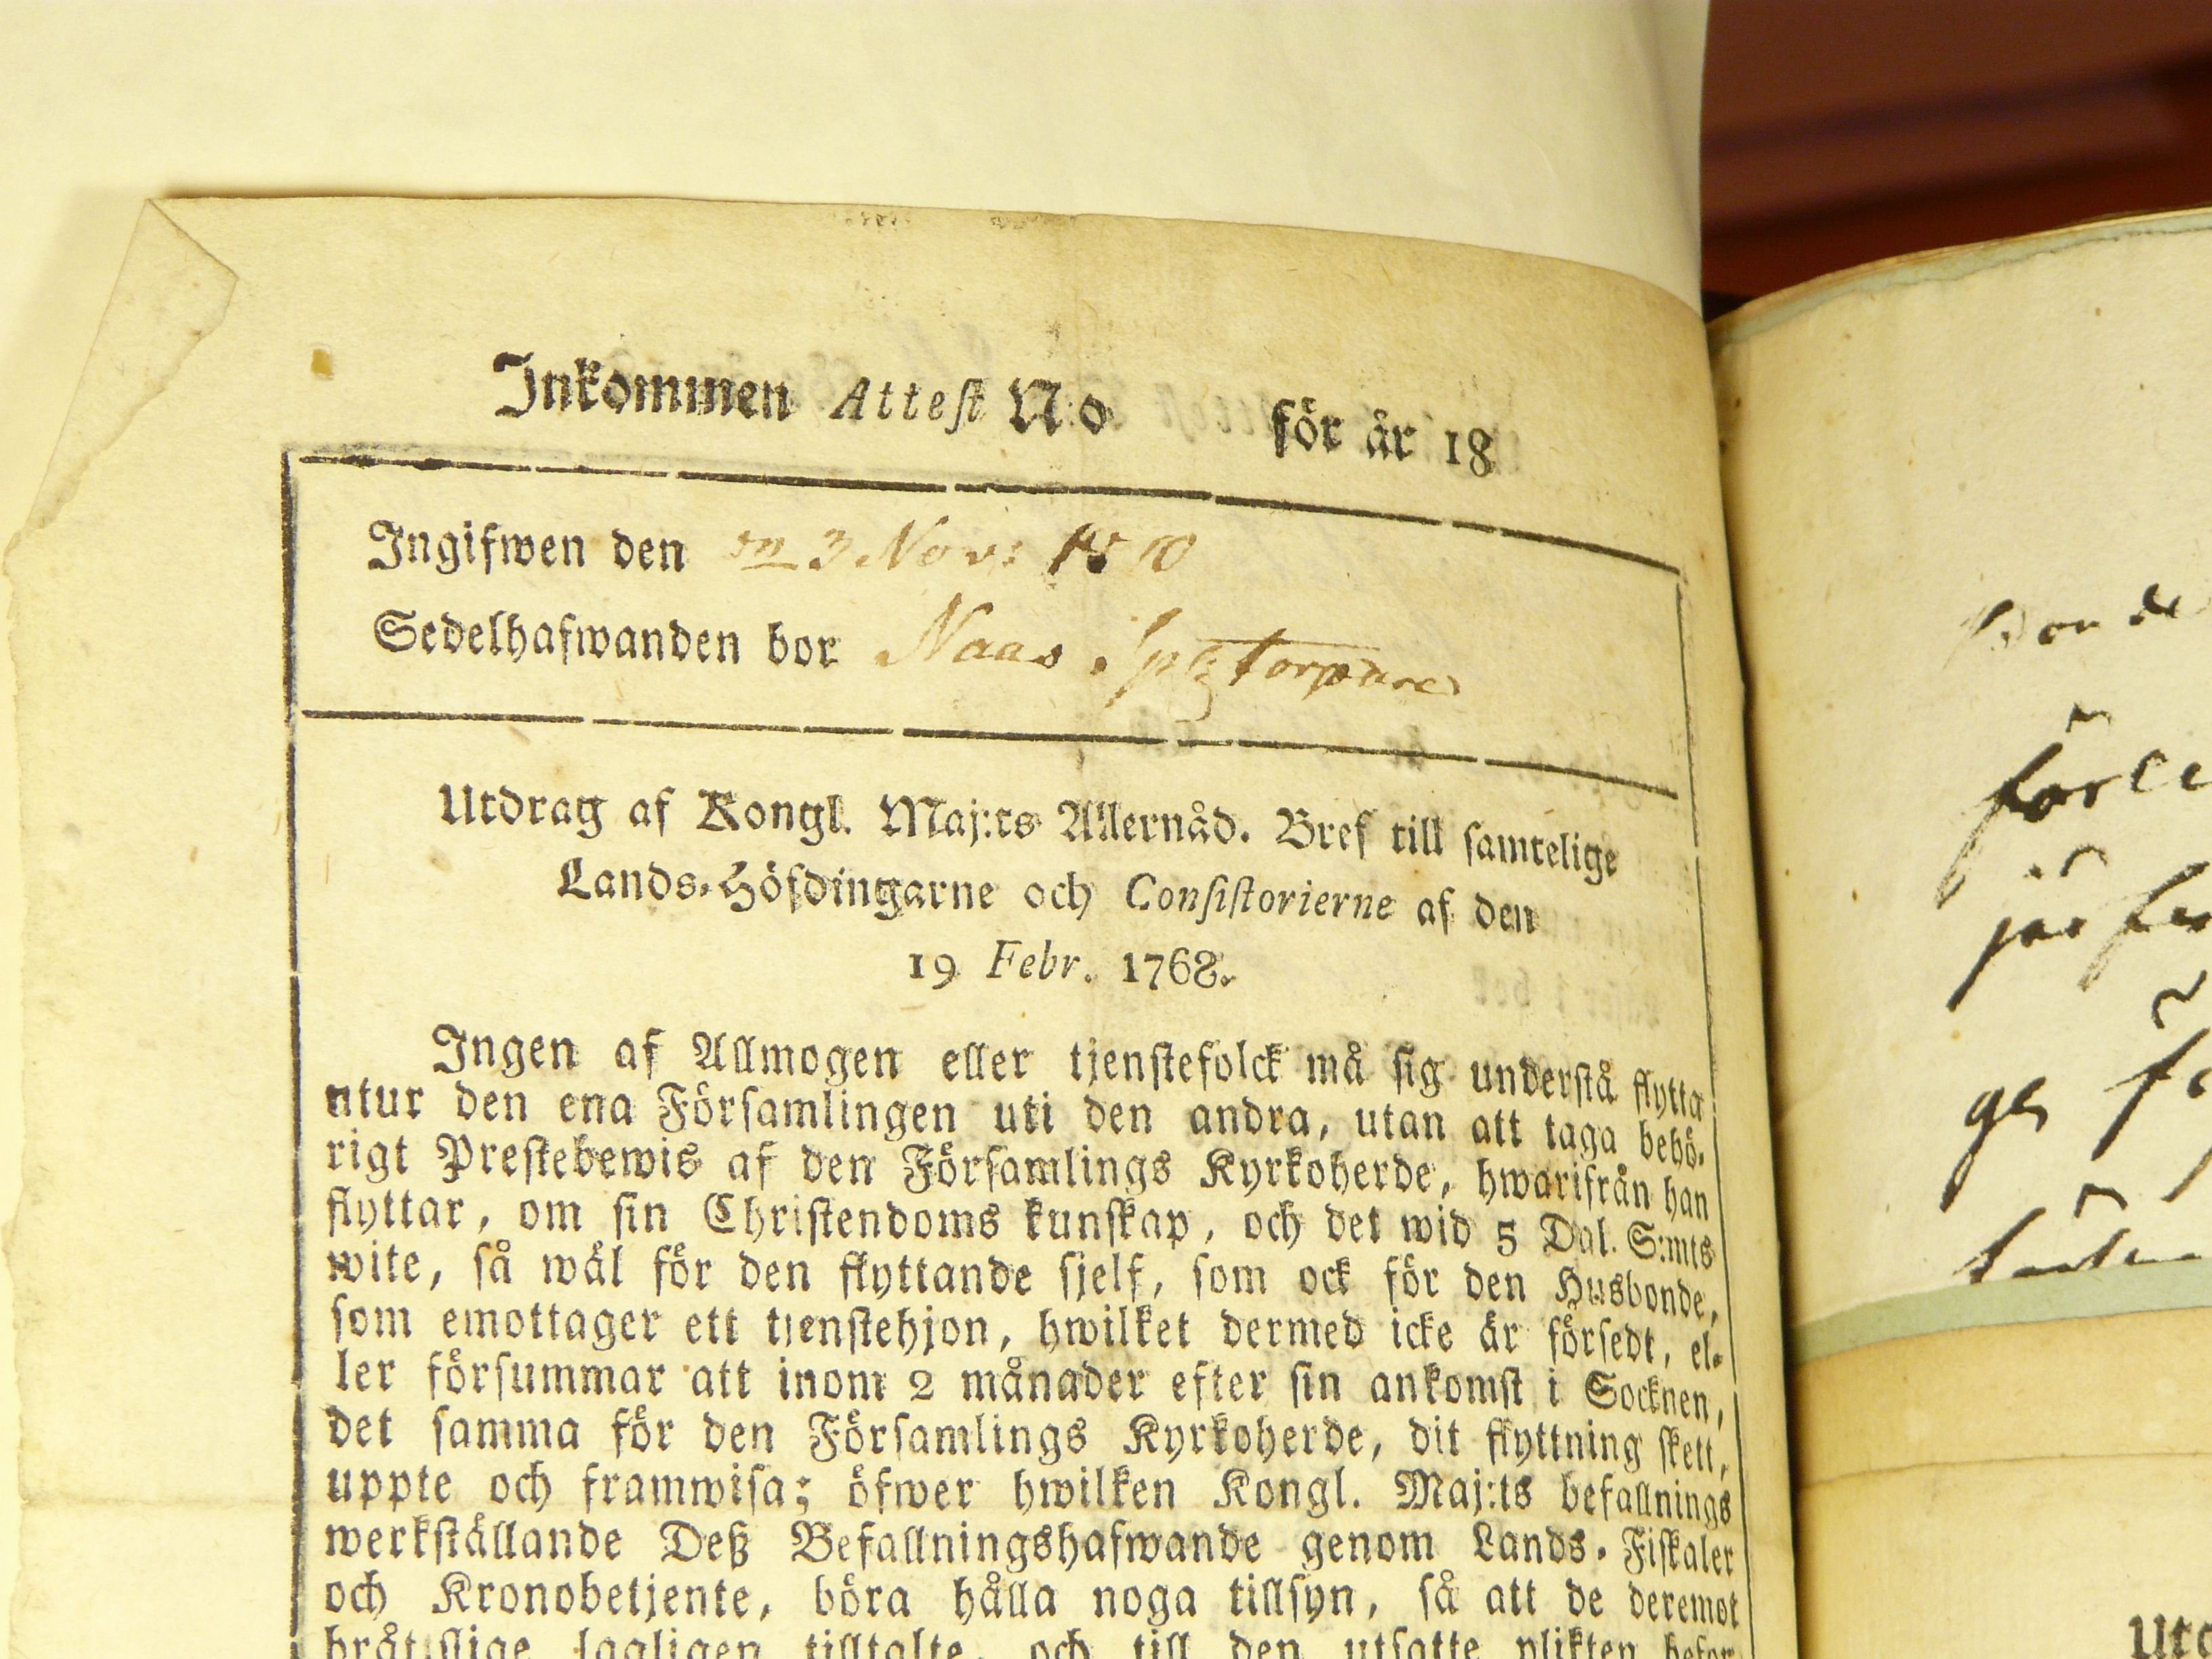 Inkommen Attest No för år 18
Ingifwen den 3 Nov: 1810
Sedelhafwanden bor Naas
Utdrag af Kongl. Maj:ts Allernåd. Bref till samtelige
Lands-Höfdingarne och Consistorierne af den
19 Febr. 1768.
Ingen af Allmogen eller tjenstefolck må sig understå flytta
utur den ena Församlingen uti den andra, utan att taga behö-
rigt Prestebewis af den Församlings Kyrkoherde, hwarifrån han
flyttar, om sin Christendoms kunskap, och det wid 5 Dal. S:mts
wite, så wäl för den flyttande sjelf, som ock för den Husbonde,
som emottager ett tjenstehjon, hwilket dermed icke är försedt, el-
ler försummar att inom 2 månader efter sin ankomst i Socknen,
det samma för den Församlings Kyrkoherde, dit flyttning skett,
uppte och framwisa; öfwer hwilken Kongl. Maj:ts befallnings
werkställande Deß Befallningshafwande genom Lands-Fiskaler
och Kronobetjente, böra hålla noga tillsyn, så att de deremot
lagligen tilltalte, och till den utsatte plikten